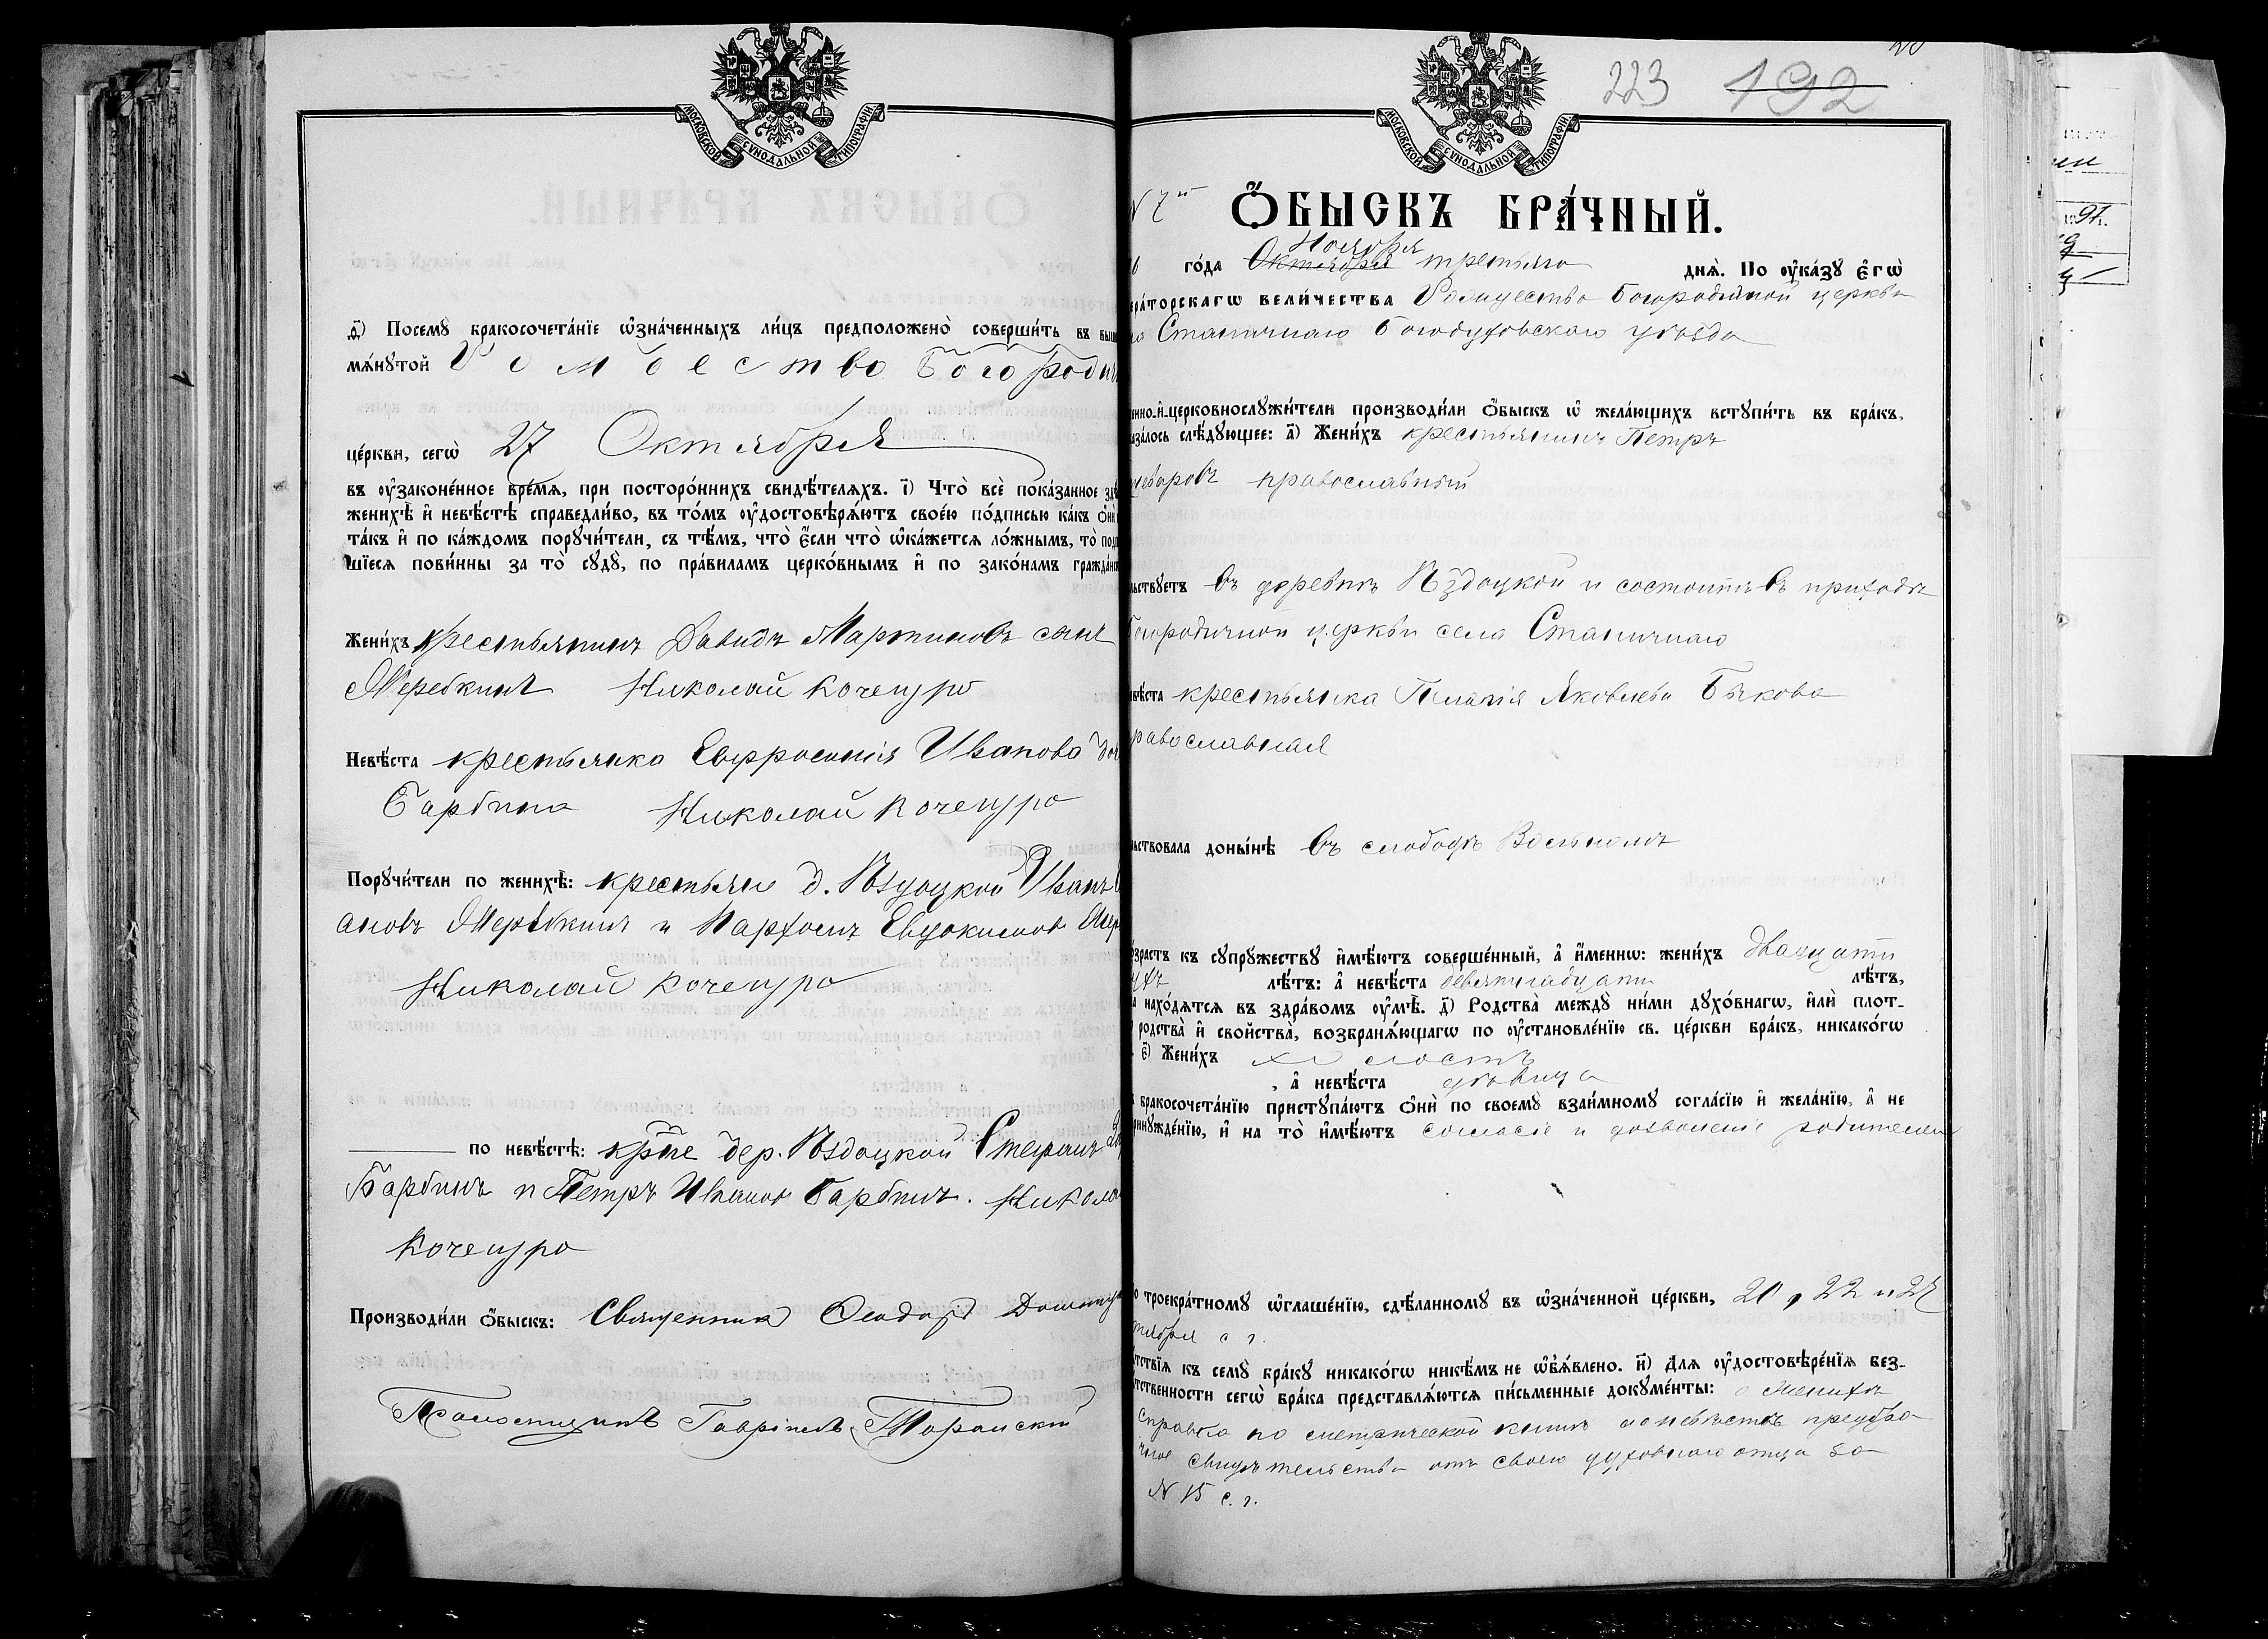 МОСКОВСКОЙ СѴНОДАЛЬНОЙ ТИПОГРАФІИ
д҃) Посемꙋ бракосочета́нїе ѡ҆зна́ченныхъ ли́цъ предположено̀ соверши́ть въ выш
мѧ́нꙋтой Рождество Богородич
це́ркви, сегѡ̀ 27 Октября
въ ᲂу҆законе́нное вре́мѧ, при посторо́ннихъ свидѣ́телѧхъ. і҃) Что̀ всѐ пока́занное здѣ
женихѣ̀ и҆ невѣ́стѣ справедли́во, въ то́мъ ᲂу҆достовѣрѧ́ютъ свое́ю по́дписью ка́къ ѻ҆нѝ
та́къ и҆ по ка́ждомъ порꙋчи́тели, съ тѣ́мъ, что̀ є҆́сли что̀ ѡ҆ка́жетсѧ ло́жнымъ, то̀ подп
шїесѧ пови́нны за то̀ сꙋдꙋ̀, по пра́виламъ церко́внымъ и҆ по зако́намъ гражда́нск
Жени́хъ крестьянинъ Давидъ Мартиновъ сынъ
Жеребкинъ Николай Кочещро
Невѣ́ста крестьянка Евфросинія Иванова доч
Барбина Николай Кочещро
Порꙋчи́тели по женихѣ̀: крестьяне д. Иванъ
ановъ Жеребкинъ и Парфенъ Евдокимовъ Жер
Николай Кочещро
по невѣ́стѣ: кр̃не дер. Стефанъ
Барбинъ и Петръ Ивановъ Барбинъ. Никола
Кочещро
Производи́ли ѻ҆́быскъ: Священникъ Ѳеодоръ
Псаломщикъ Гавріилъ
223 192
МОСКОВСКОЙ СѴНОДАЛЬНОЙ ТИПОГРАФІИ
N 7й ѺБЫСКЪ БРА́ЧНЫЙ.
Ноября
6 го́да Октября третьяго днѧ̀. По ᲂу҆ка́зꙋ є҆гѡ̀
ера́торскагѡ вели́чества Рождество Богородичной церкви
ла Станичнаго Богодуховскаго уѣзда
енно-и҆-церковнослꙋжи́тели производи́ли ѻ҆́быскъ ѡ҆ жела́ющихъ встꙋпи́ть въ бра́къ,
аза́лось слѣ́дꙋющее: а҃) Жени́хъ крестьянинъ Петръ
православный
льствꙋетъ въ деревнѣ и состоитъ въ приходѣ
Богородичной церкви села Станичнаго
евѣ́ста крестьянка Пелагія Яковлева Бѣкова
равославная
льствовала доны́нѣ въ слободѣ Вольномъ
о́зрастъ къ сꙋпрꙋжествꙋ и҆мѣ́ютъ соверше́нный, а҆ и҆́меннѡ: жени́хъ двадцати
лѣ́тъ: а҆ невѣ́ста девятнадцати лѣ́тъ,
а нахо́дѧтсѧ въ здра́вомъ ᲂу҆мѣ̀. д҃) Родства̀ междꙋ̀ ни́ми дꙋхо́внагѡ, и҆лѝ плот-
родства̀ и҆ свойства̀, возбранѧ́ющагѡ по ᲂу҆становле́нїю св. це́ркви бра́къ, никако́гѡ
є҃) Жени́хъ холостъ
, а҆ невѣ́ста дѣвица
бракосочета́нїю пристꙋпа́ютъ ѻ҆нѝ по своемꙋ̀ взаи́мномꙋ согла́сїю и҆ жела́нїю, а҆ не
ринꙋжде́нїю, и҆ на то̀ и҆мѣ́ютъ согласіе и дозволеніе родителей
о троекра́тномꙋ ѡ҆глаше́нїю, сдѣ́ланномꙋ въ ѡ҆зна́ченной це́ркви, 20, 22 и 27
ктября с. г.
тствїѧ къ семꙋ̀ бра́кꙋ никако́гѡ никѣ́мъ не ѡ҆б̾ѧ́влено. и҃) Длѧ ᲂу҆достовѣре́нїѧ без-
тственности сегѡ̀ бра́ка представлѧ́ютсѧ пи́сьменные докꙋме́нты: о женихѣ
справка по метрической книгѣ а о невѣстѣ предбра-
чное свидѣтельство отъ своего духовнаго отца за
N 15 с. г.